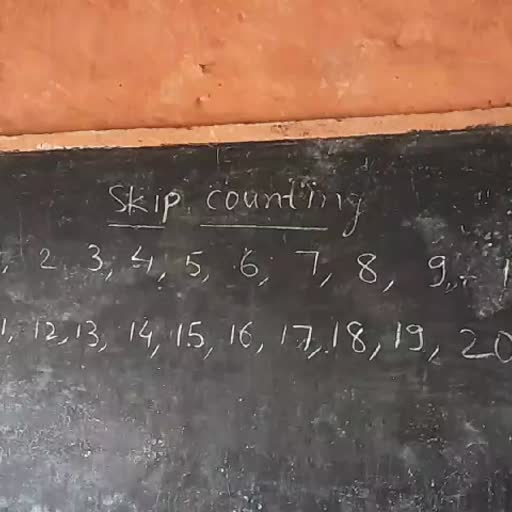 Skip counting
, 2 3, 4, 5, 6, 7, 8, 9, 1
1, 12, 13, 14, 15, 16, 17, 18, 19, 20